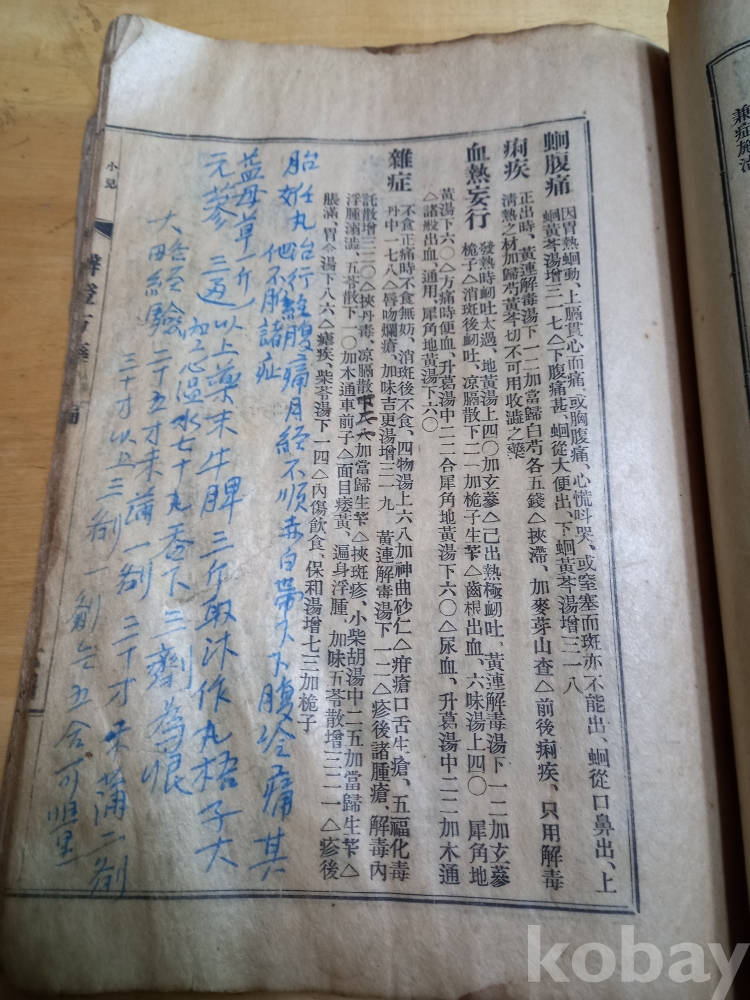 兼症施治
蛔腹痛
因胃熱蛔動、上膈貫心而痛、或胸腹痛、心慌叫哭、或窒塞而斑亦不能出、蛔從口鼻出、上
蛔黃芩湯增三一七△下腹痛甚、蛔從大便出、下蛔黃芩湯增三一八
痢疾
正出時、黃連解毒湯下一二加當歸白芍各五錢△挾滯、加麥芽山查△前後痢疾、只用解毒
清熱之材加歸芍黃芩切不可用收澁之藥
血熱妄行
發熱時衂吐太過、地黃湯上四〇加玄蔘△已出熱極衂吐、黃連解毒湯下一二加玄蔘
梔子△消斑後衂吐、凉膈散下二一加梔子生芐△齒根出血、六味湯上四〇犀角地
黃湯下六〇△方痛時便血、升葛湯中二二合犀角地黃湯下六〇△尿血、升葛湯中二二加木通
△諸般出血、通用、犀角地黃湯下六〇
雜症
不食正痛時不食無妨、消斑後不食、四物湯上六八加神曲砂仁△疳瘡口舌生瘡、五福化毒
丹中一七八△唇吻爛瘡、加味吉更湯增三一九 黃連解毒湯下一二△疹後諸腫瘡、解毒內
託散增三二〇△挾丹毒、凉膈散下二一加當歸生芐△挾斑疹、小柴胡湯中二五加當歸生芐△
浮腫濱澁、五苓散下一〇加木通車前子△面目痿黃、遍身浮腫、加味五苓散增三二一△疹後
脹滿、胃令湯下八六△瘧疾、柴苓湯下一四△內傷飮食、保和湯增七三加梔子
胎妊丸治行經腹痛月經不順赤白帶下下腹冷痛其
他不脈諸症
益母草一斤
元蔘 三两 以上藥末牛脾三介取汁作丸梧子大
空心温水七十丸吞下三劑為限
大略經驗 二十五才未滿一劑 二十才未滿二劑
三十才以上三劑
小兒
kobay